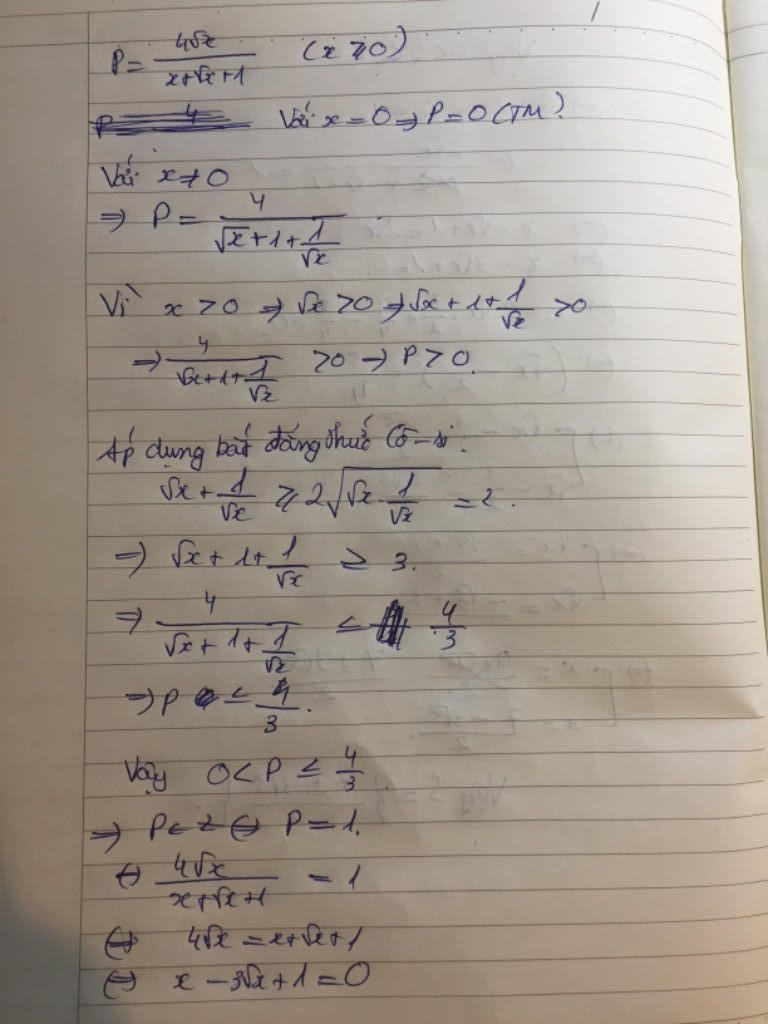 P = \frac{4\sqrt{x}}{x+\sqrt{x}+1} (x ≥ 0)
Với x = 0 ⇒ P = 0 (TM).
Với x ≠ 0
⇒ P = \frac{4}{\sqrt{x}+1+\frac{1}{\sqrt{x}}}
Vì x > 0 ⇒ \sqrt{x} > 0 ⇒ \sqrt{x}+1+\frac{1}{\sqrt{x}} > 0
⇒ \frac{4}{\sqrt{x}+1+\frac{1}{\sqrt{x}}} > 0 ⇒ P > 0.
Áp dụng bất đẳng thức Cô-si:
\sqrt{x}+\frac{1}{\sqrt{x}} ≥ 2\sqrt{\sqrt{x}.\frac{1}{\sqrt{x}}} = 2.
⇒ \sqrt{x}+1+\frac{1}{\sqrt{x}} ≥ 3.
⇒ \frac{4}{\sqrt{x}+1+\frac{1}{\sqrt{x}}} ≤ \frac{4}{3}
⇒ P ≤ \frac{4}{3}.
Vậy 0 < P ≤ \frac{4}{3}
⇒ P ∈ Z ⇔ P = 1.
⇔ \frac{4\sqrt{x}}{x+\sqrt{x}+1} = 1
⇔ 4\sqrt{x} = x+\sqrt{x}+1
⇔ x - 3\sqrt{x}+1 = 0